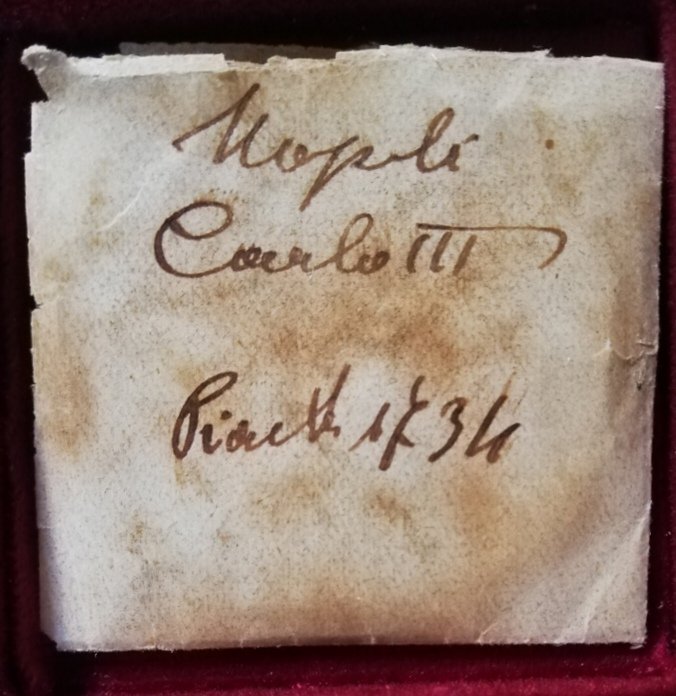 Napoli
Carlo III
Piastra 1734